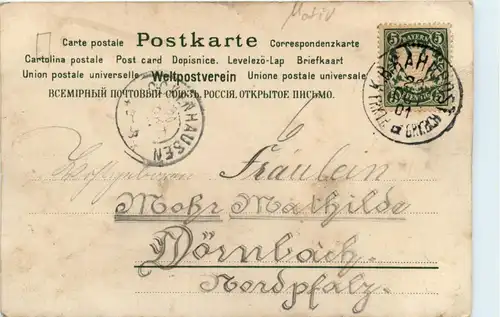 Motiv
Carte postale Postkarte Correspondenzkarte
Cartolina postale Post card Dopisnice. Levelező-Lap Briefkaart
Union postale universelle Weltpostverein Unione postale universale
ВСЕМІРНЫЙ ПОЧТОВЫЙ СОЮЗЪ. РОССІЯ. ОТКРЫТОЕ ПИСЬМО.
5 BAYERN 5
K.B. BAHNPOST
01
HAUSEN
Fräulein
Mohr Mathilde
Dörnbach.
Nordpfalz.